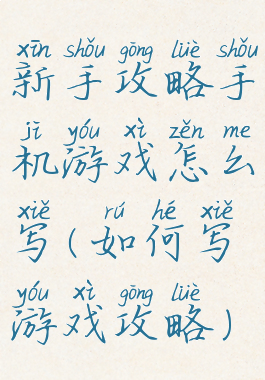 xīn shǒu gōng lüè shǒu
新手攻略手
jī yóu xì zěn me
机游戏怎么
xiě rú hé xiě
写(如何写
yóu xì gōng lüè
游戏攻略)